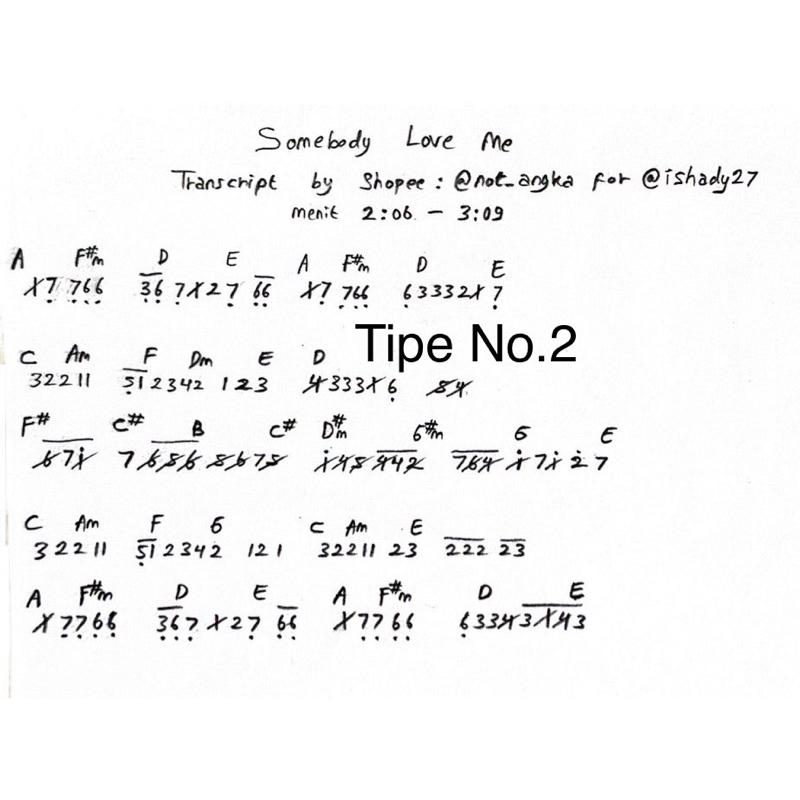 Somebody Love Me
Transcript by Shopee : @not_angka for @ishady27
menit 2:06 - 3:09
A F#m D E A F#m D E
1̸7 766 367 71̸27 66 1̸7 766 633321̸ 7
Tipe No.2
C Am F Dm E D
32211 512342 123 4̸3331̸6 5̸4̸
F# C# B C# D#m G#m G E
6̸71̸ 7 6̸5̸6̸ 5̸675̸ 1̸4̸5̸ 4̸4̸2̸ 76̸4̸ 1̸71̸27
C Am F G C Am E
32211 512342 121 32211 23 222 23
A F#m D E A F#m D E
1̸7766 367 1̸27 66 1̸7766 6334̸31̸4̸3